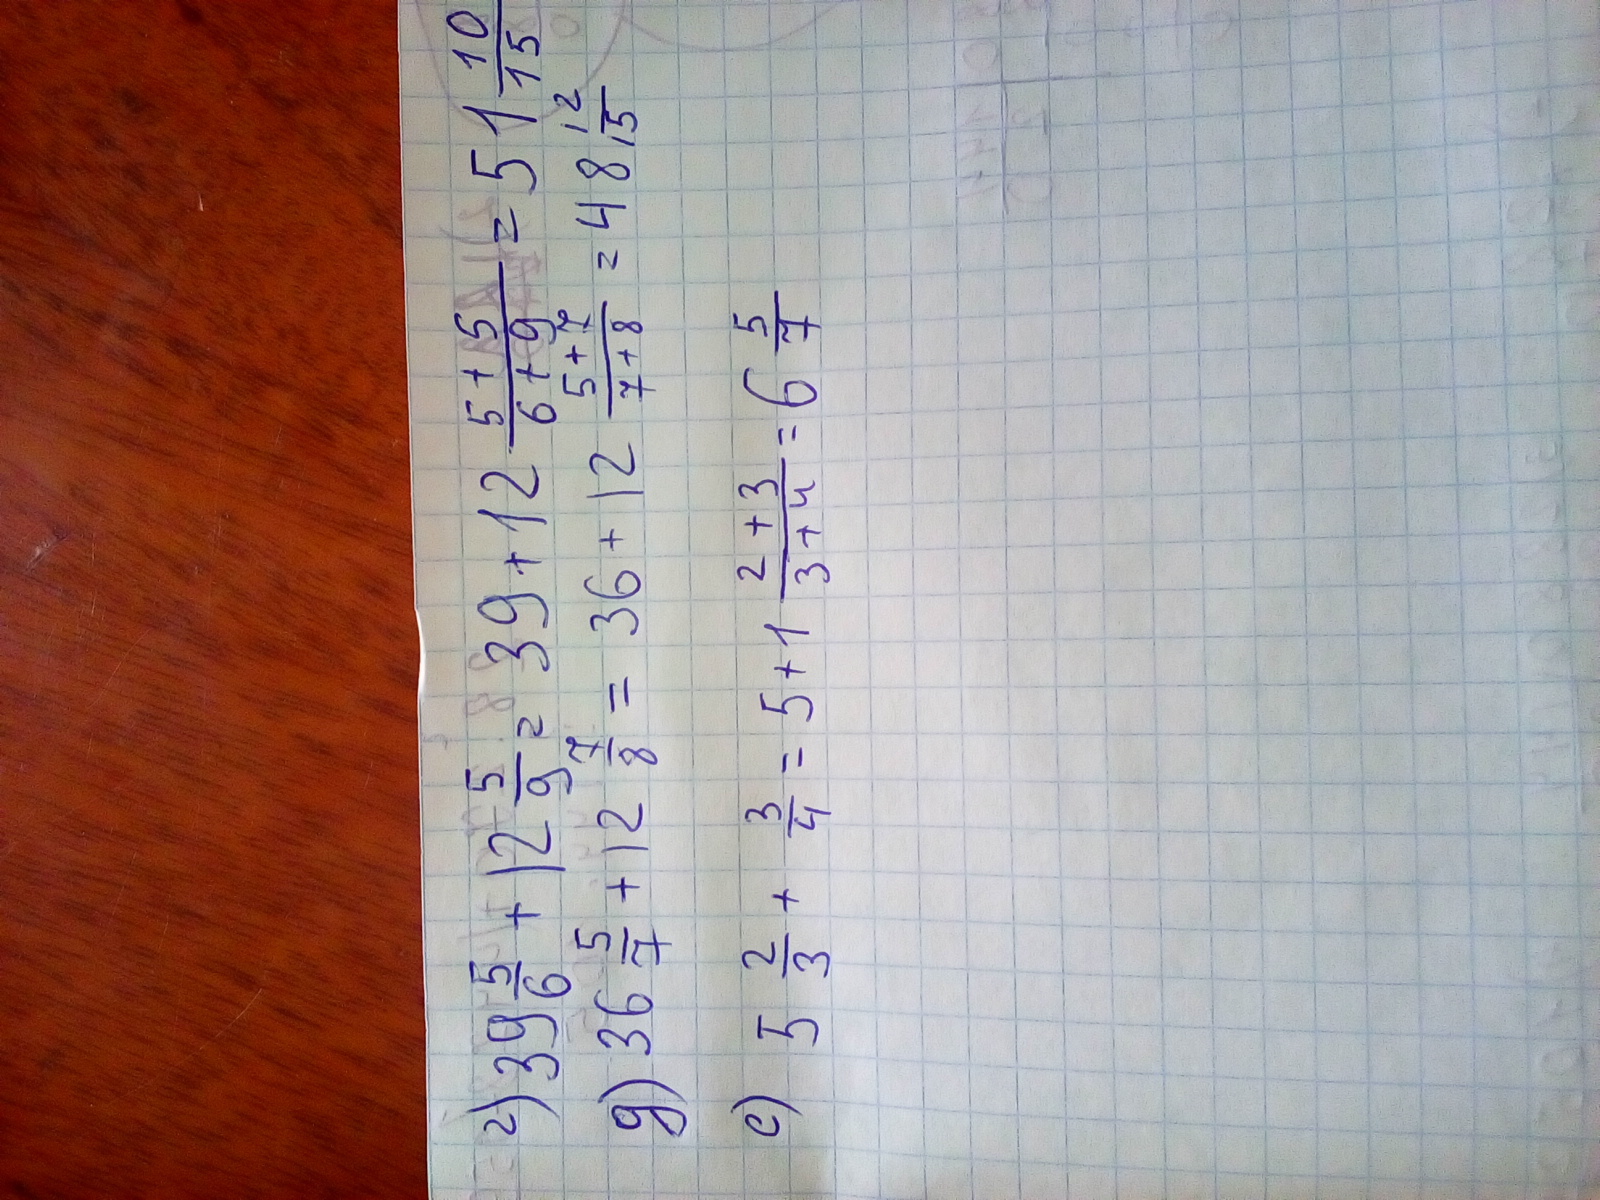 г) 39 5/6 + 12 5/9 = 39 + 12 5+5/6+9 = 51 10/15
д) 36 5/7 + 12 7/8 = 36 + 12 5+7/7+8 = 48 12/15
е) 5 2/3 + 3/4 = 5 + 1 2+3/3+4 = 6 5/7